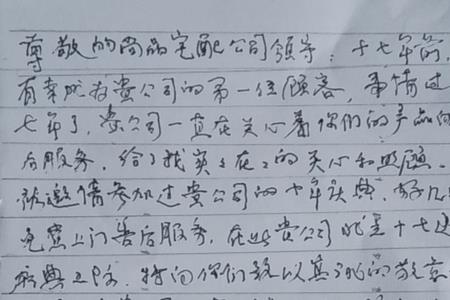 尊敬的尚品宅配公司领导：十七年前，
有幸成为贵公司的第一位顾客，事情过
七年了，贵公司一直在关心着你们的产品
后服务，给了我实实在在的关心和照顾。
邀请参加过贵公司的十年庆典，好几
免费上门售后服务，在此贵公司 十七
庆典之际，特向你们致以真诚的